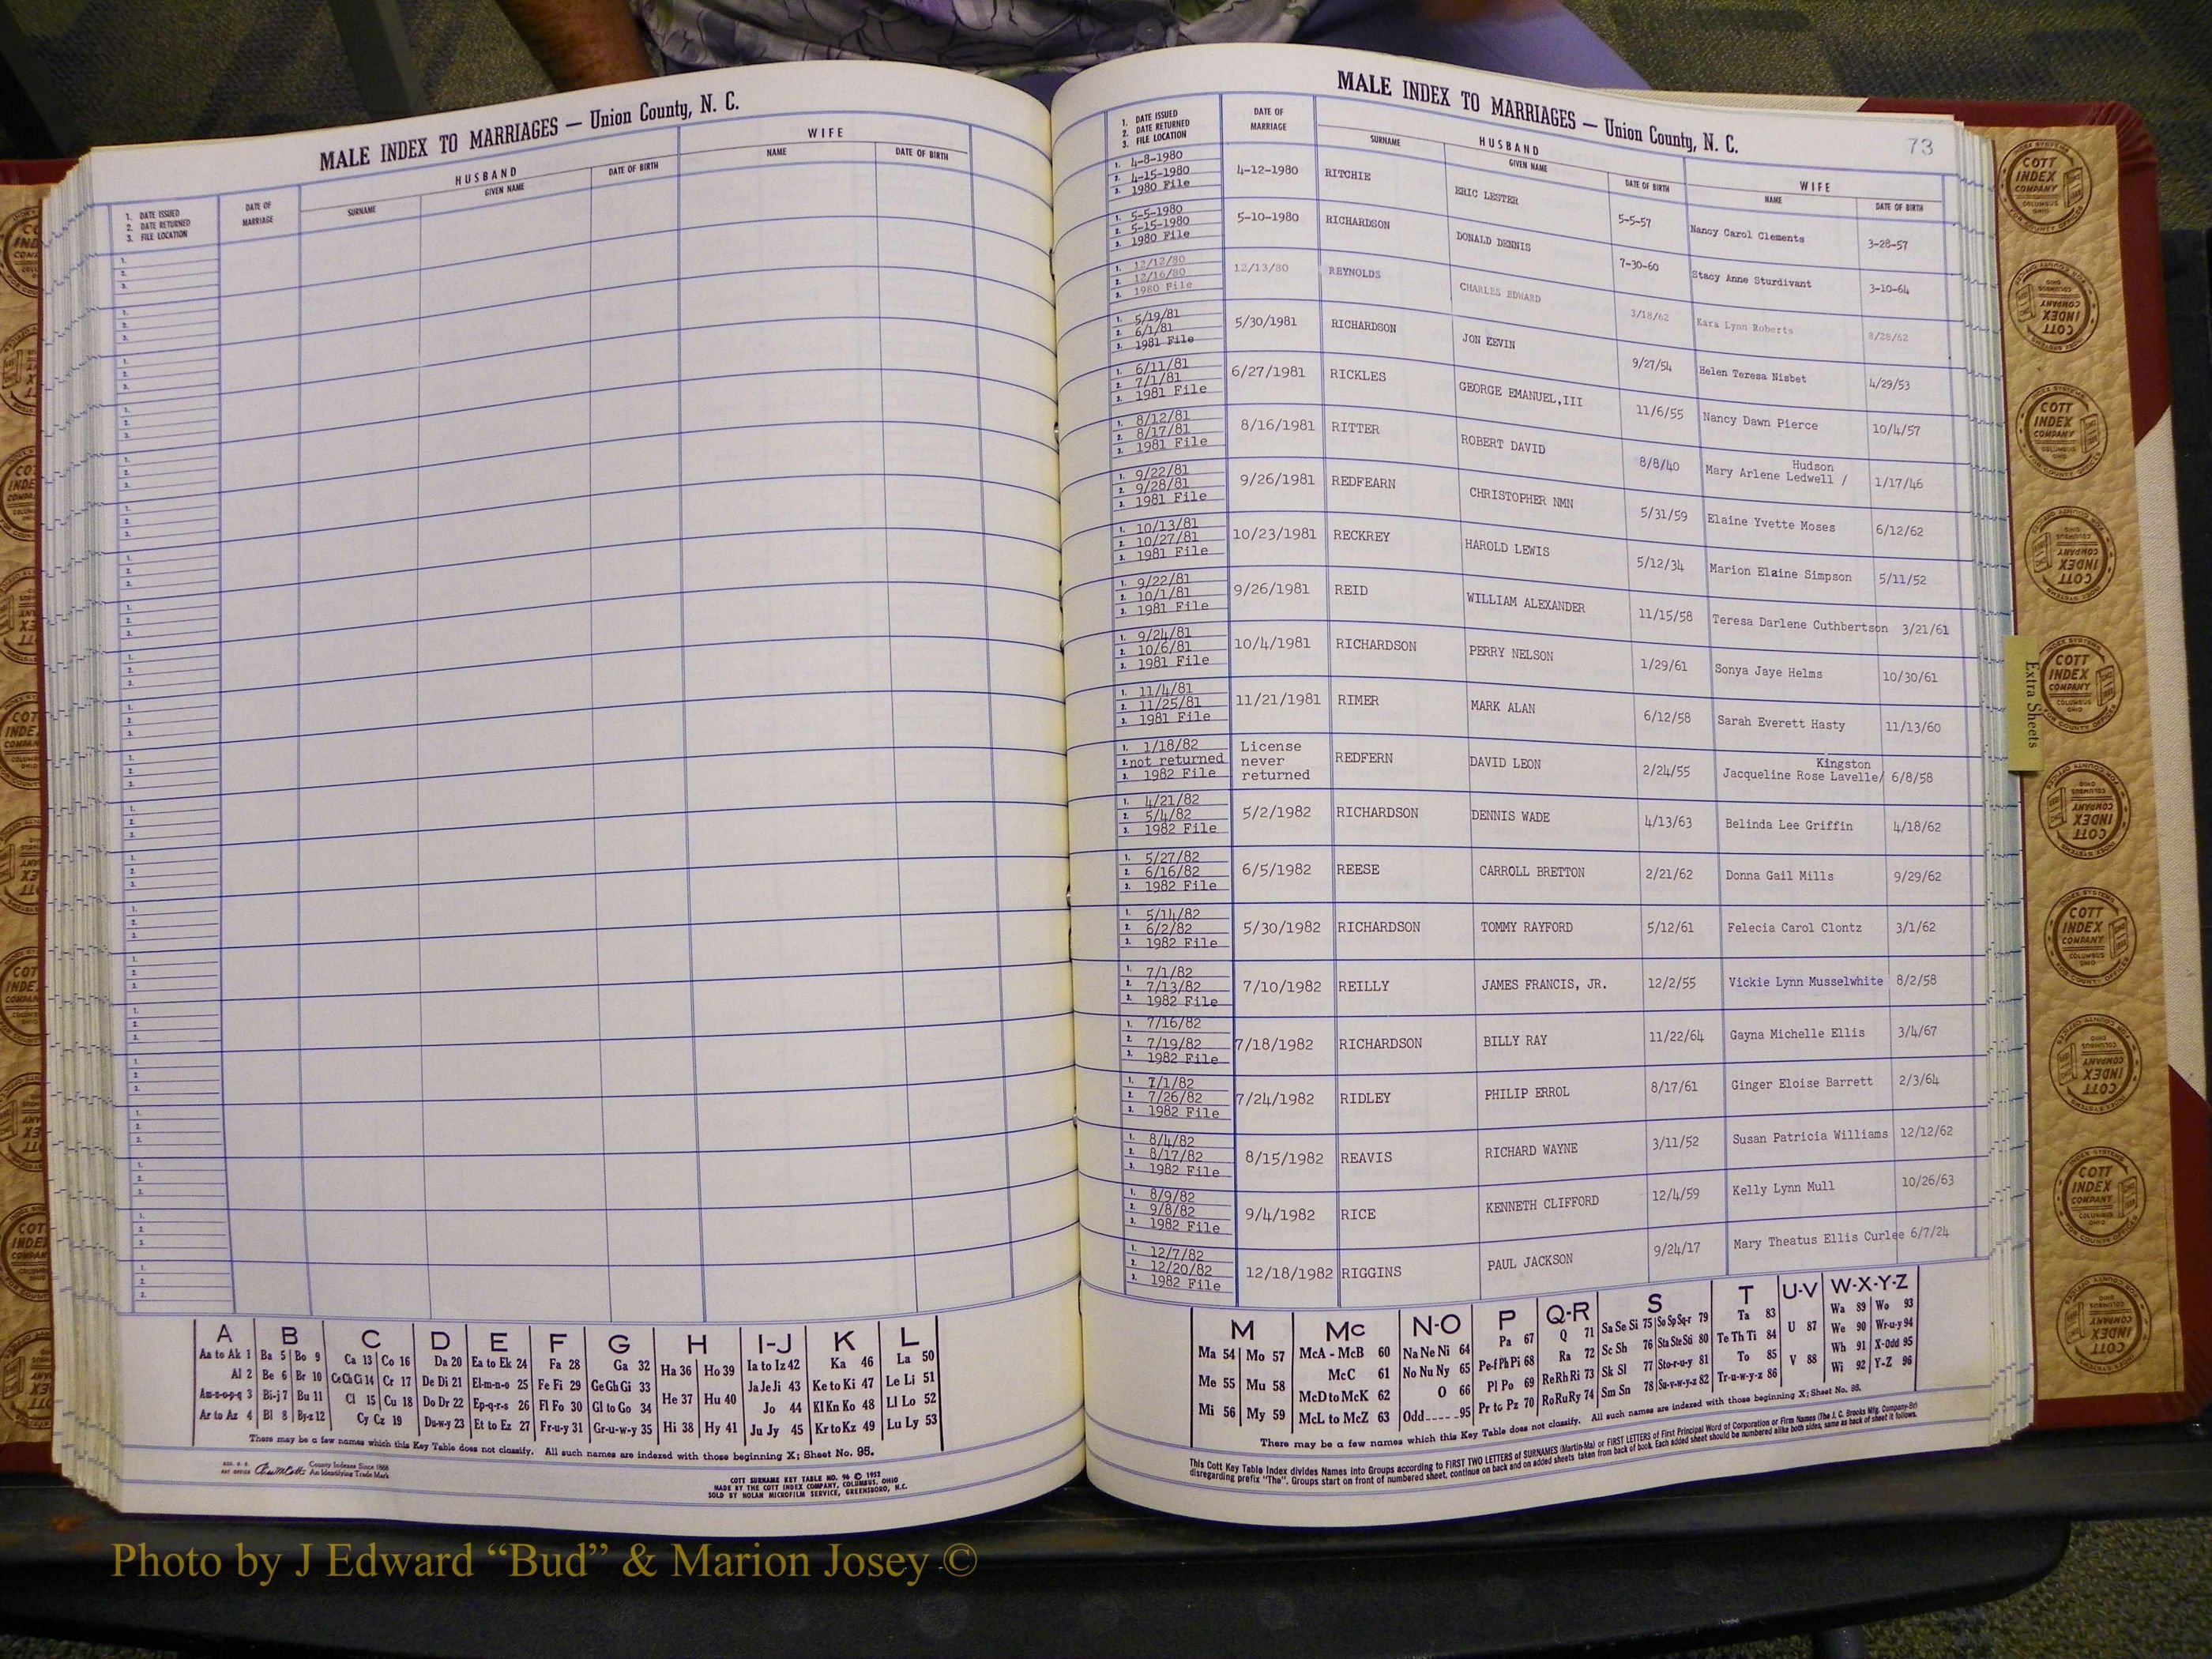 MALE INDEX TO MARRIAGES — Union County, N. C.
HUSBAND WIFE
1. DATE ISSUED
2. DATE RETURNED
3. FILE LOCATION
DATE OF MARRIAGE SURNAME GIVEN NAME DATE OF BIRTH NAME DATE OF BIRTH
A B C D E F G H I-J K L
Aa to Ak 1 Ba 5 Bo 9 Ca 13 Co 16 Da 20 Ea to Ek 24 Fa 28 Ga 32 Ha 36 Ho 39 Ia to Iz 42 Ka 46 La 50
Al 2 Be 6 Br 10 Ce Ch Ci 14 Cr 17 De Di 21 El-m-n-o 25 Fe Fi 29 Ge Gh Gi 33 He 37 Hu 40 Ja Je Ji 43 Ke to Ki 47 Le Li 51
Am-n-o-p-q 3 Bi-j 7 Bu 11 Cl 15 Cu 18 Do Dr 22 Ep-q-r-s 26 Fl Fo 30 Gl to Go 34 Jo 44 Kl Kn Ko 48 Ll Lo 52
Ar to Az 4 Bl 8 By-z 12 Cy Cz 19 Du-w-y 23 Et to Ez 27 Fr-u-y 31 Gr-u-w-y 35 Hi 38 Hy 41 Ju Jy 45 Kr to Kz 49 Lu Ly 53
There may be a few names which this Key Table does not classify. All such names are indexed with those beginning X; Sheet No. 95.
County Indexes Since 1888
An Identifying Trade Mark
COTT SURNAME KEY TABLE NO. 96 © 1952
MADE BY THE COTT INDEX COMPANY, COLUMBUS, OHIO
SOLD BY NOLAN MICROFILM SERVICE, GREENSBORO, N.C.
MALE INDEX TO MARRIAGES — Union County, N. C.
73
HUSBAND WIFE
1. DATE ISSUED
2. DATE RETURNED
3. FILE LOCATION
DATE OF MARRIAGE SURNAME GIVEN NAME DATE OF BIRTH NAME DATE OF BIRTH
1. 4-8-1980
2. 4-15-1980
3. 1980 File
4-12-1980 RITCHIE ERIC LESTER 5-5-57 Nancy Carol Clements 3-28-57
1. 5-5-1980
2. 5-15-1980
3. 1980 File
5-10-1980 RICHARDSON DONALD DENNIS 7-30-60 Stacy Anne Sturdivant 3-10-64
1. 12/12/80
2. 12/16/80
3. 1980 File
12/13/80 REYNOLDS CHARLES EDWARD 3/18/62 Kara Lynn Roberts 8/28/62
1. 5/19/81
2. 6/1/81
3. 1981 File
5/30/1981 RICHARDSON JON KEVIN 9/27/54 Helen Teresa Nisbet 4/29/53
1. 6/11/81
2. 7/1/81
3. 1981 File
6/27/1981 RICKLES GEORGE EMANUEL,III 11/6/55 Nancy Dawn Pierce 10/4/57
1. 8/12/81
2. 8/17/81
3. 1981 File
8/16/1981 RITTER ROBERT DAVID 8/8/40 Mary Arlene Ledwell / Hudson 1/17/46
1. 9/22/81
2. 9/28/81
3. 1981 File
9/26/1981 REDFEARN CHRISTOPHER NMN 5/31/59 Elaine Yvette Moses 6/12/62
1. 10/13/81
2. 10/27/81
3. 1981 File
10/23/1981 RECKREY HAROLD LEWIS 5/12/34 Marion Elaine Simpson 5/11/52
1. 9/22/81
2. 10/1/81
3. 1981 File
9/26/1981 REID WILLIAM ALEXANDER 11/15/58 Teresa Darlene Cuthbertson 3/21/61
1. 9/24/81
2. 10/6/81
3. 1981 File
10/4/1981 RICHARDSON PERRY NELSON 1/29/61 Sonya Jaye Helms 10/30/61
1. 11/4/81
2. 11/25/81
3. 1981 File
11/21/1981 RIMER MARK ALAN 6/12/58 Sarah Everett Hasty 11/13/60
1. 1/18/82
2. not returned
3. 1982 File
License never returned REDFERN DAVID LEON 2/24/55 Jacqueline Rose Lavelle/ Kingston 6/8/58
1. 4/21/82
2. 5/4/82
3. 1982 File
5/2/1982 RICHARDSON DENNIS WADE 4/13/63 Belinda Lee Griffin 4/18/62
1. 5/27/82
2. 6/16/82
3. 1982 File
6/5/1982 REESE CARROLL BRETTON 2/21/62 Donna Gail Mills 9/29/62
1. 5/14/82
2. 6/2/82
3. 1982 File
5/30/1982 RICHARDSON TOMMY RAYFORD 5/12/61 Felecia Carol Clontz 3/1/62
1. 7/1/82
2. 7/13/82
3. 1982 File
7/10/1982 REILLY JAMES FRANCIS, JR. 12/2/55 Vickie Lynn Musselwhite 8/2/58
1. 7/16/82
2. 7/19/82
3. 1982 File
7/18/1982 RICHARDSON BILLY RAY 11/22/64 Gayna Michelle Ellis 3/4/67
1. 7/1/82
2. 7/26/82
3. 1982 File
7/24/1982 RIDLEY PHILIP ERROL 8/17/61 Ginger Eloise Barrett 2/3/64
1. 8/4/82
2. 8/17/82
3. 1982 File
8/15/1982 REAVIS RICHARD WAYNE 3/11/52 Susan Patricia Williams 12/12/62
1. 8/9/82
2. 9/8/82
3. 1982 File
9/4/1982 RICE KENNETH CLIFFORD 12/4/59 Kelly Lynn Mull 10/26/63
1. 12/7/82
2. 12/20/82
3. 1982 File
12/18/1982 RIGGINS PAUL JACKSON 9/24/17 Mary Theatus Ellis Curlee 6/7/24
M Mc N-O P Q-R S T U-V W-X-Y-Z
Ma 54 Mo 57 McA - McB 60 Na Ne Ni 64 Pa 67 Q 71 Sa Se Si 75 So Sp Sq-r 79 Ta 83 U 87 Wa 89 Wo 93
McC 61 No Nu Ny 65 Pe-f Ph Pi 68 Ra 72 Sc Sh 76 Sta Ste Sti 80 Te Th Ti 84 We 90 Wr-u-y 94
Me 55 Mu 58 McD to McK 62 O 66 Pl Po 69 Re Rh Ri 73 Sk Sl 77 Sto-r-u-y 81 To 85 V 88 Wh 91 X-Odd 95
Mi 56 My 59 McL to McZ 63 Odd-----95 Pr to Pz 70 Ro Ru Ry 74 Sm Sn 78 Su-v-w-y-z 82 Tr-u-w-y-z 86 Wi 92 Y-Z 96
There may be a few names which this Key Table does not classify. All such names are indexed with those beginning X; Sheet No. 95.
This Cott Key Table Index divides Names into Groups according to FIRST TWO LETTERS of SURNAMES (Martin-Ma) or FIRST LETTERS of First Principal Word of Corporation or Firm Names (The J. C. Brooks Mfg. Company-Br)
disregarding prefix "The". Groups start on front of numbered sheet, continue on back and on added sheets taken from back of book. Each added sheet should be numbered alike both sides, same as back of sheet it follows.
Extra Sheets
COTT
INDEX
COMPANY
COLUMBUS
OHIO
INDEX SYSTEMS
FOR COUNTY OFFICES
Photo by J Edward “Bud” & Marion Josey ©